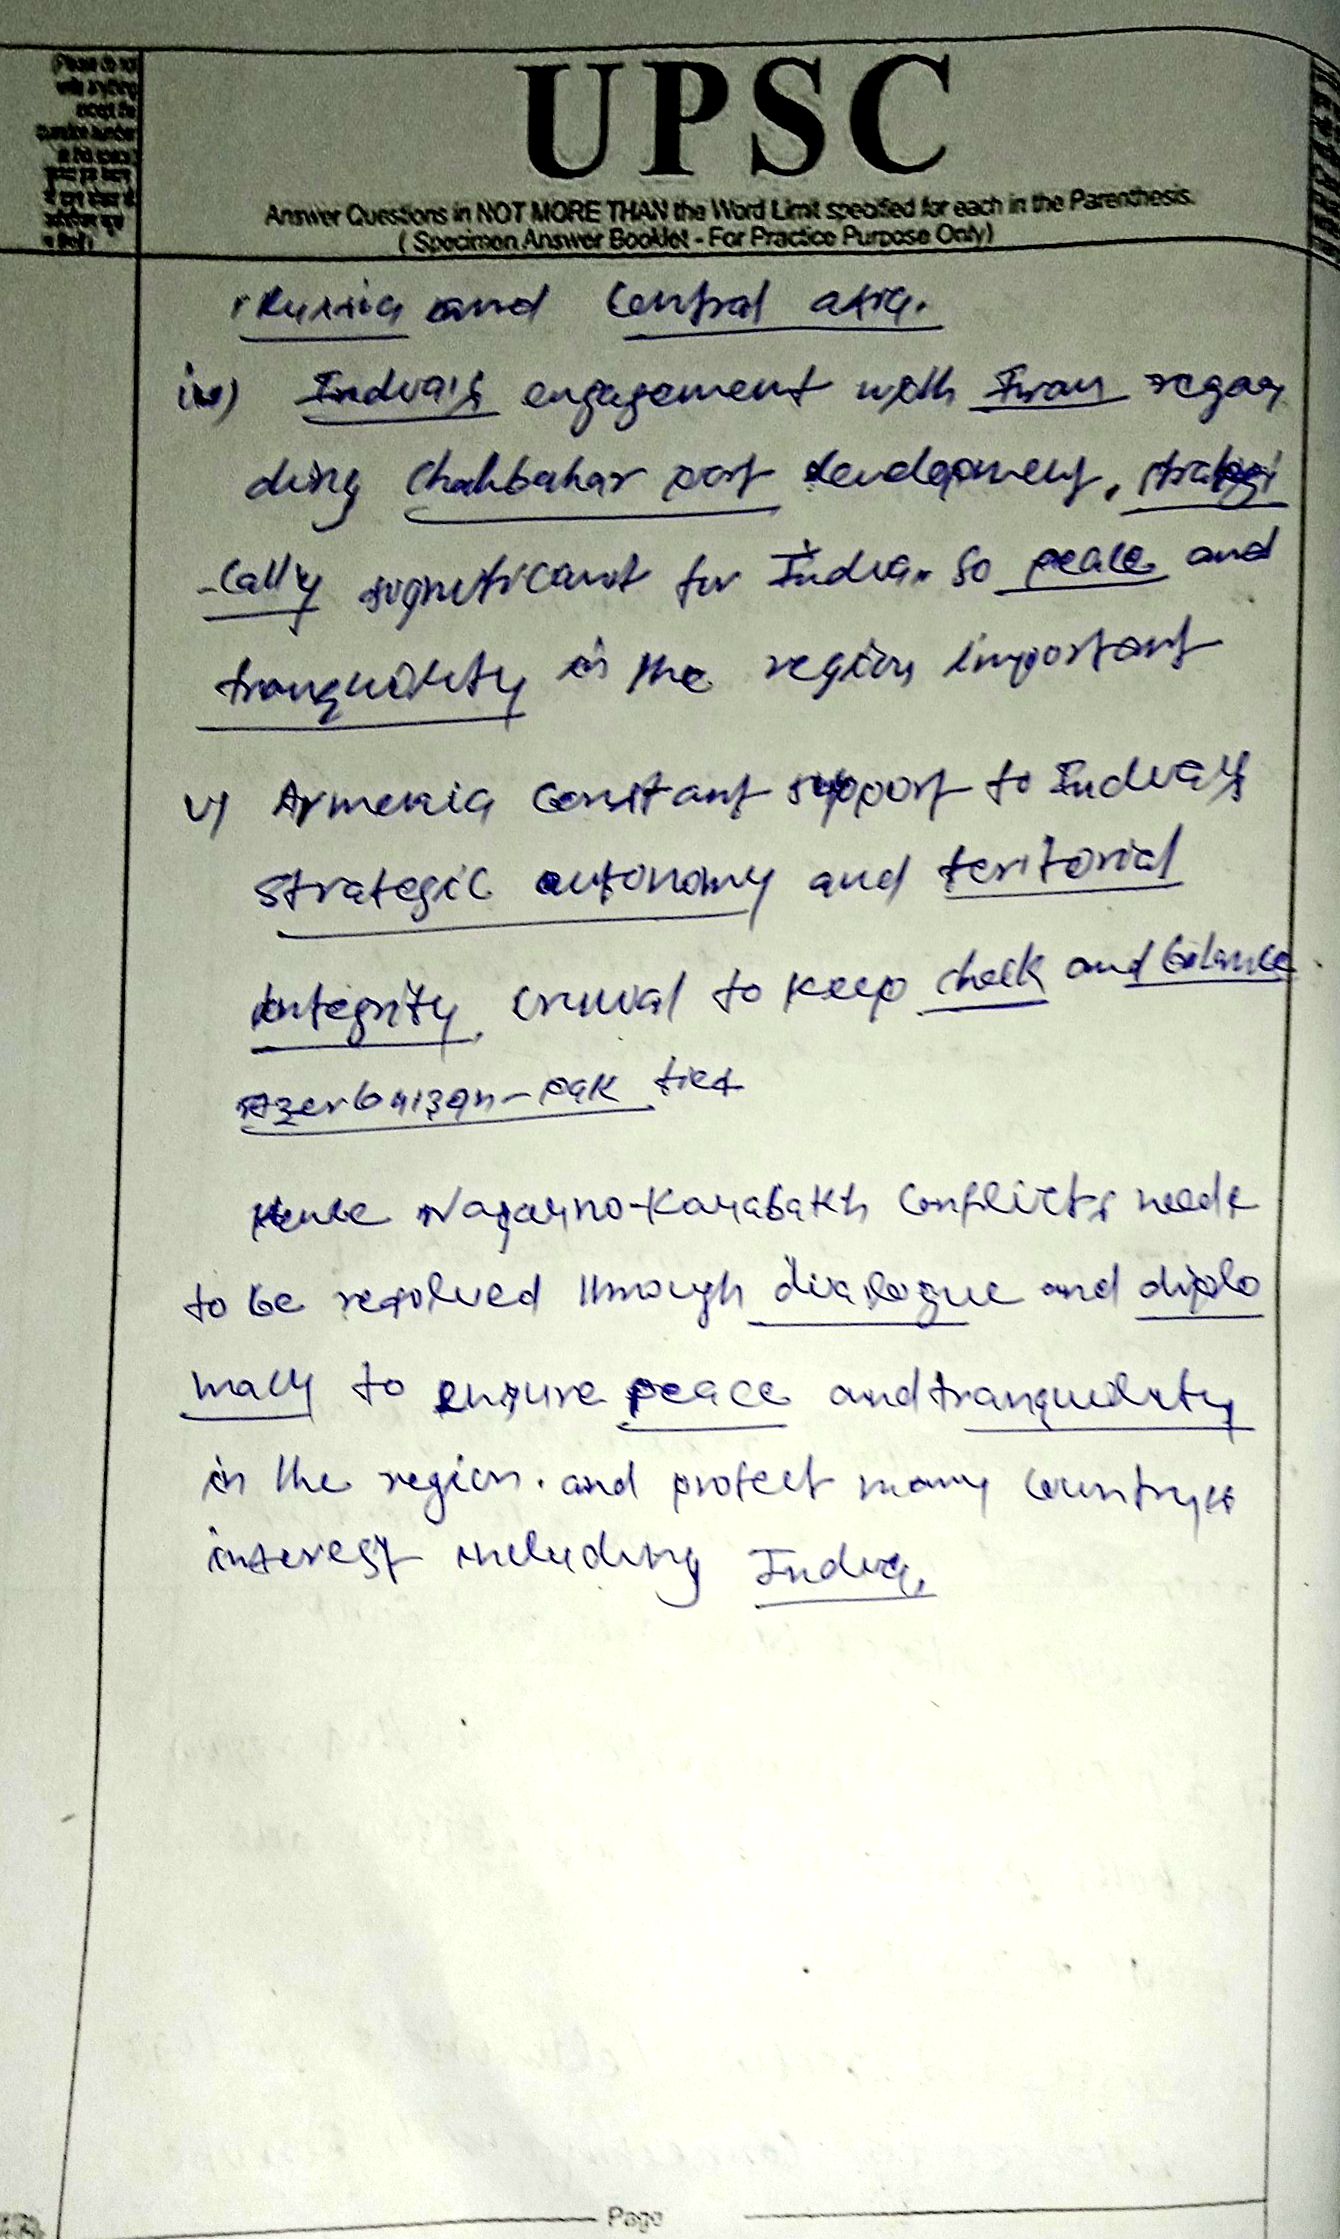 (Please do not
write anything
except the
question number
in this space)
UPSC
Answer Questions in NOT MORE THAN the Word Limit specified for each in the Parenthesis.
( Specimen Answer Booklet - For Practice Purpose Only)
Russia and Central asia.
iv) India's engagement with Iran regar
ding Chahbahar port development, strategi
-cally significant for India. So peace and
tranquility in the region important
v) Armenia constant support to India's
strategic autonomy and teritorial
integrity, crucial to keep check and balance
Azerbaizan-pak ties
Hence Nagarno-Karabakh conflicts needs
to be resolved through dialogue and diplo
macy to ensure peace and tranquility
in the region. and protect many country's
interest including India.
Page